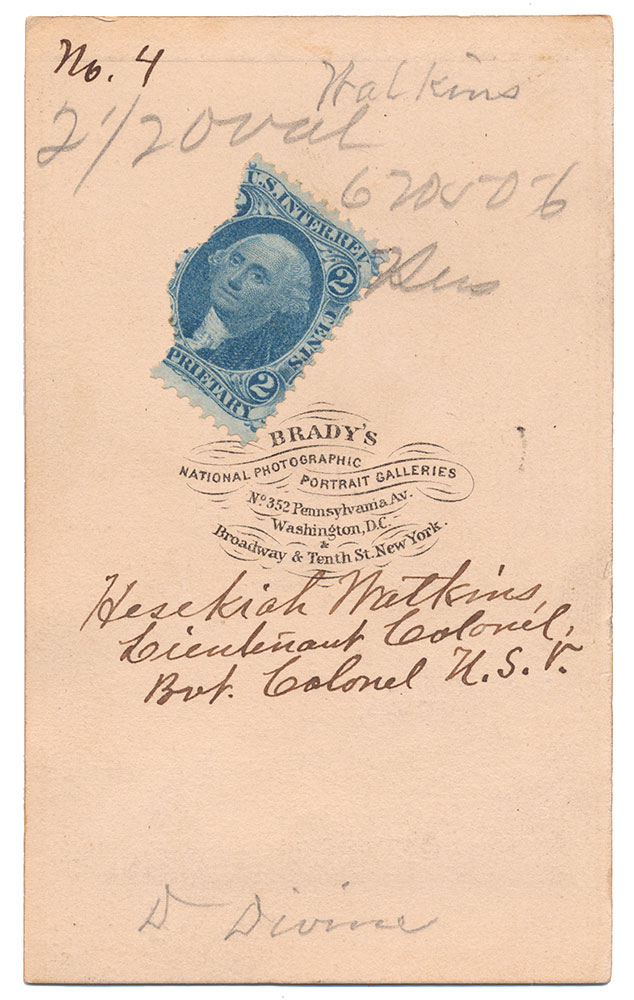 No. 4
Watkins
2 1/2 Oval
U.S. INTER. REV.
2
CENTS
2
PRIETARY
BRADY'S
NATIONAL PHOTOGRAPHIC
PORTRAIT GALLERIES
No. 352 Pennsylvania Av.
Washington, D.C.
&
Broadway & Tenth St. New York.
Hesekiah Watkins,
Lieutenant Colonel,
Bvt. Colonel U.S.V.
D Divine